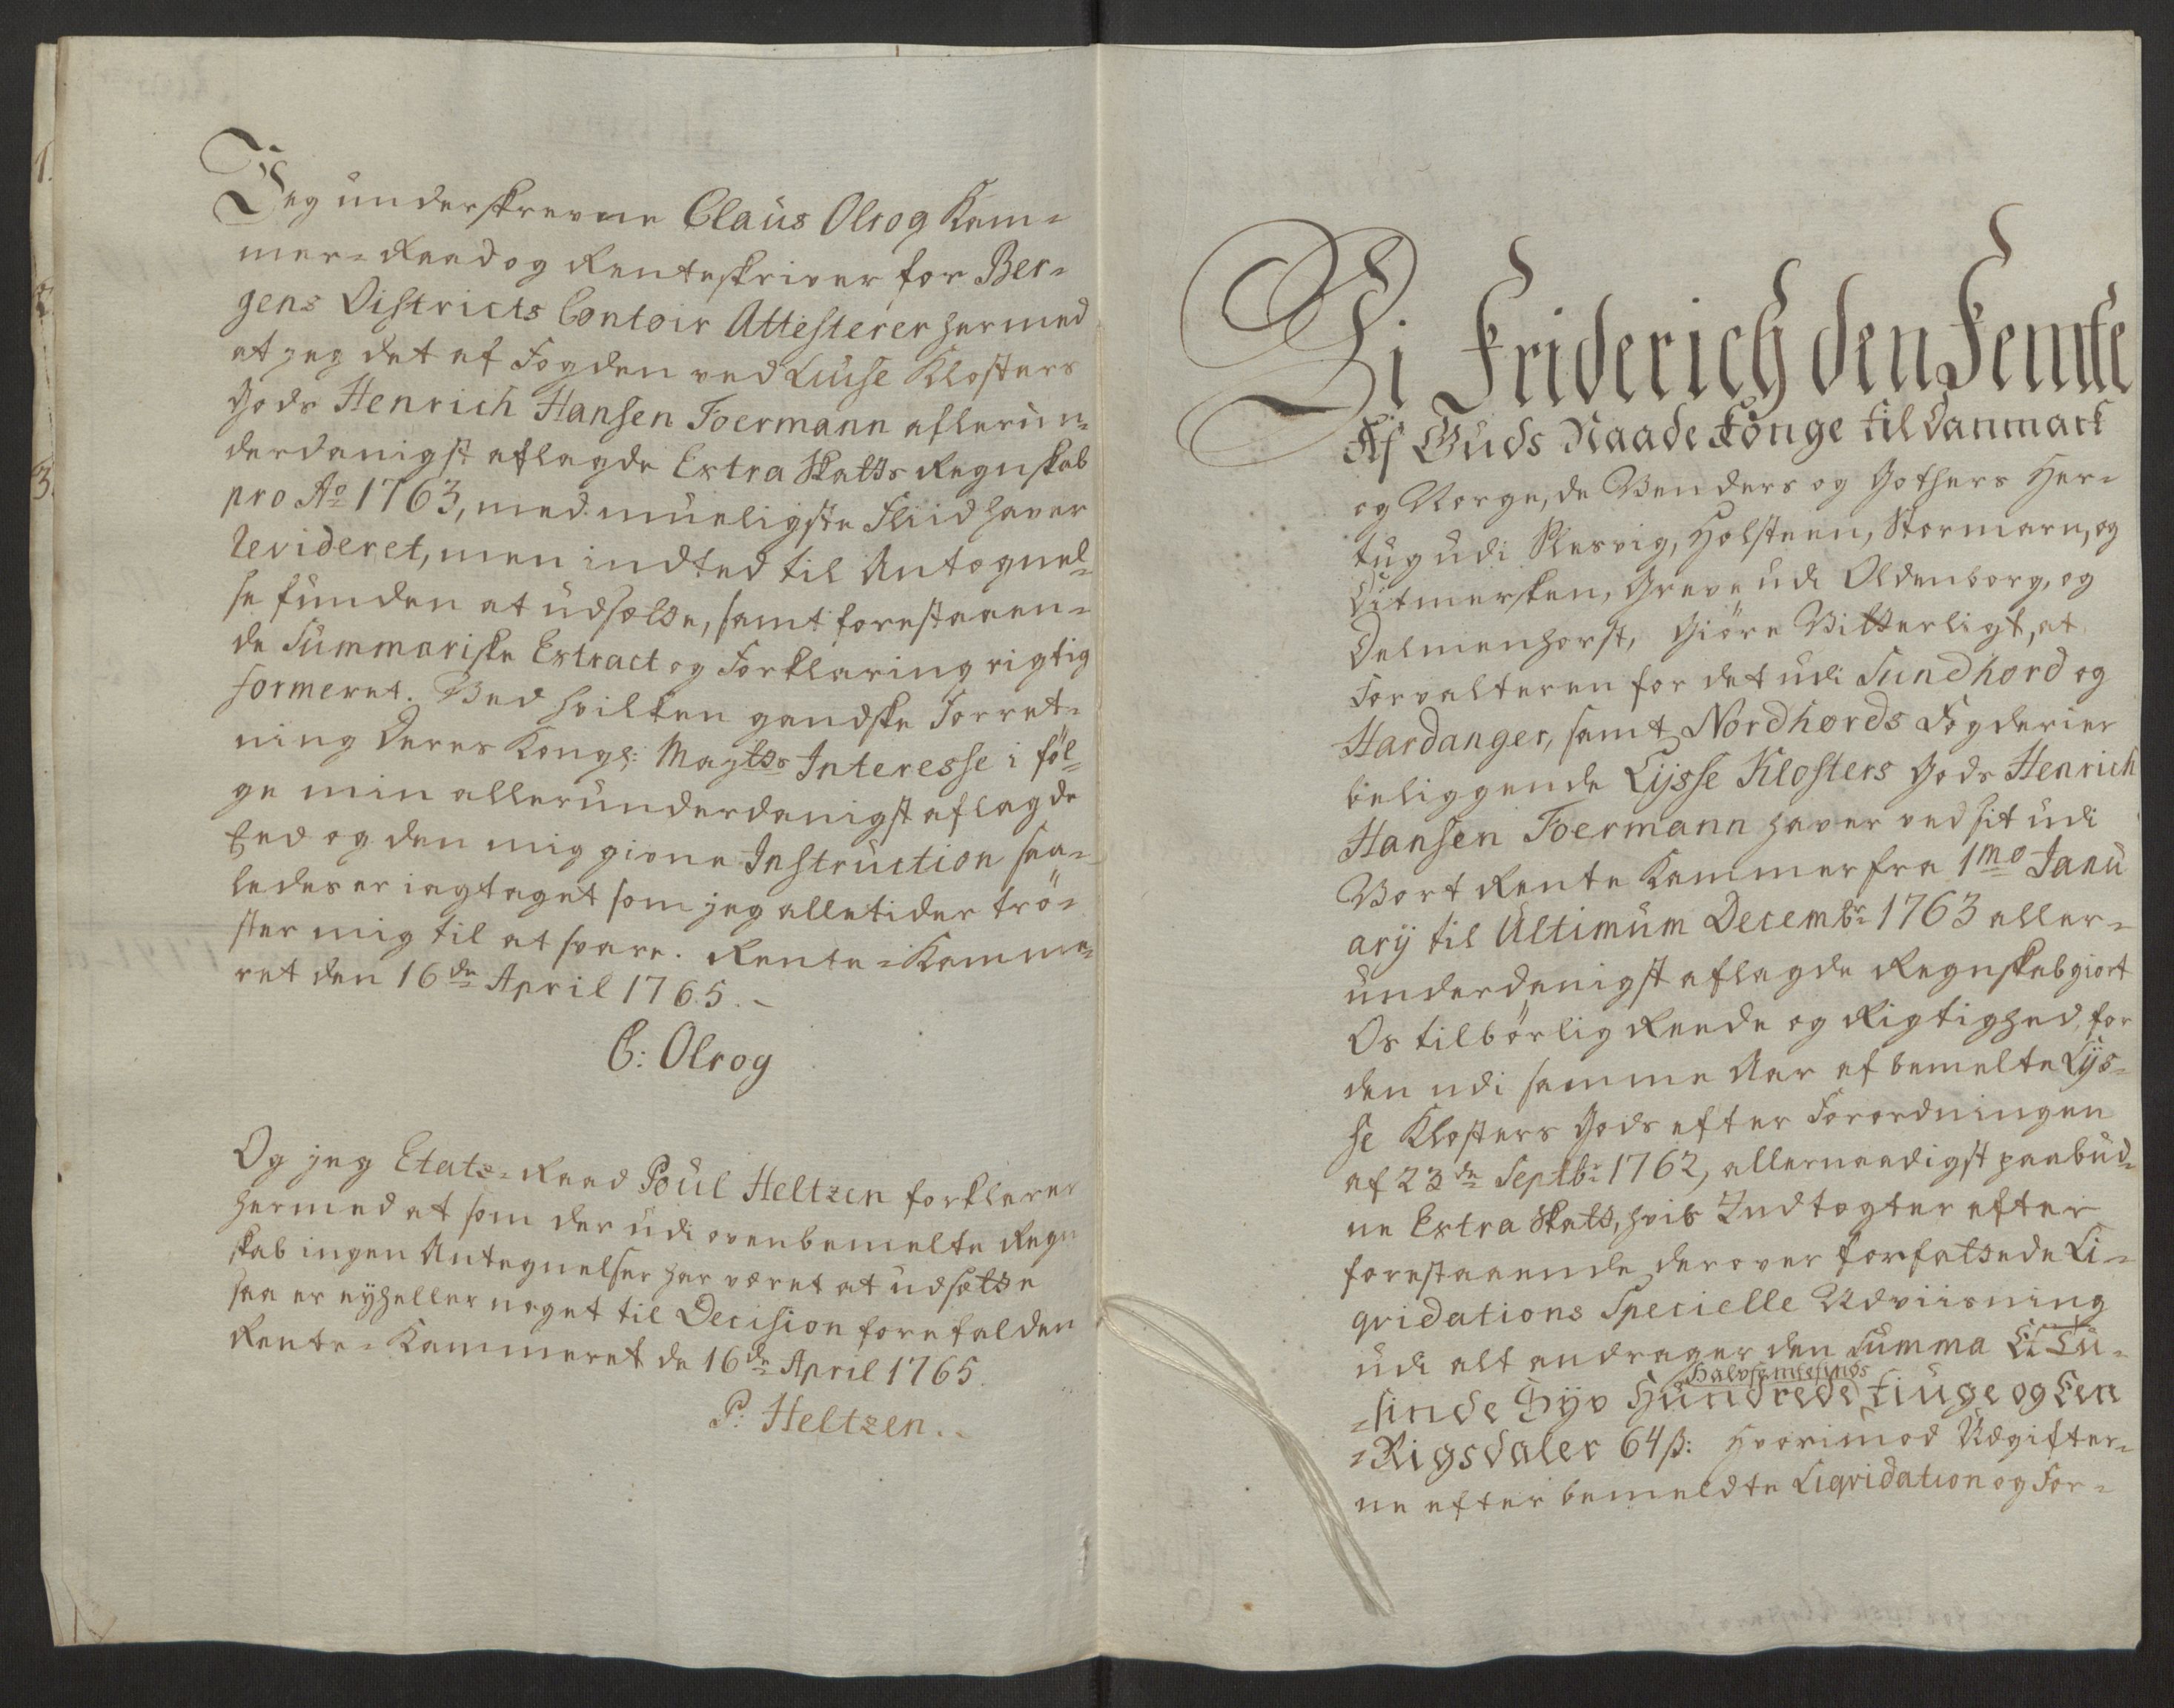 Jeg underskrevne Claus Olrog Kam-
mer-Raad og Renteskriver for Ber-
gens Districts Contoir Attesterer hermed
at jeg det af Fogden ved Luse Klosters
Gods Henrich Hansen Foermann allerun-
derdanigst aflagde Extra Skatts Regnskab
pro Ao 1763, med mueligste Fliid haver
Revideret, men indted til Antegnel-
se funden at udsætte, samt forestaaen-
de Summariske Extract og Forklaring rigtig
formeret. Ved hvilken gandske Forret-
ning Deres Kongl: Mayts Interesse i föl-
ge min allerunderdanigst aflagde
Eed og den mig givne Instruction saa-
ledes er iagtaget som jeg alletider trö-
ster mig til at svare. Rente-Kamme-
ret den 16de April 1765.
C: Olrog
Og jeg Etats-Raad Poul Heltzen forklarer
hermed at som der udi ovenbemelte Regn
skab ingen Antegnelser har været at udsætte
saa er ey heller noget til Decision forefalden
Rente-Kammeret de 16de April 1765.
P: Heltzen.
1.
2
3.
Vi Friderich den Femte
Af Guds Naade Konge til Danmark
og Norge, de Venders og Gothers Her-
tug udi Slesvig, Holsteen, Stormarn, og
Ditmersken, Greve udi Oldenborg, og
Delmenhorst, Giöre Vitterligt, at
Forvalteren for det udi Sundhord og
Hardanger, samt Nordhords Fogderier
beliggende Lysse Klosters Gods Henrich
Hansen Foermann haver ved sit udi
Vort Rente Kammer fra 1mo Janu
arij til Ultimum Decembr 1763 aller-
underdanigst aflagde Regnskab giort
Os tilbörlig Reede og Rigtighed, for
den udi samme Aar af bemelte Lys-
se Klosters Gods efter Forordningen
af 23de Septbr 1762, allernaadigst paabud-
ne Extra Skatt, hvis Indtægter efter
forestaaende derover forfattede Li-
qvidations Specielle Udviisning
udi alt andrager den Summa Et Tu-
sinde Syv Hundrede Halvfemtesinds Tiuge og Een
Rigsdaler 64 ß: Hvorimod Udgifter-
ne efter bemeldte Liqvidation og For-